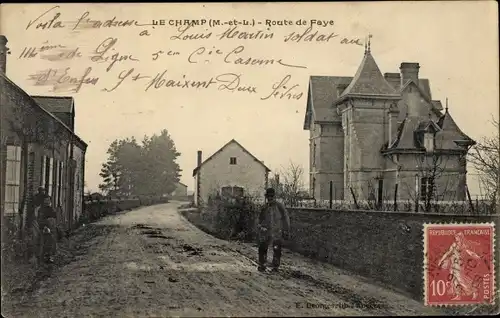 LE CHAMP (M.-et-L.) - Route de Faye
Voila l'adresse à Louis Martin soldat au
114ème de Ligne 5e Cie Caserne
St Maixent Deux Sèvres
RÉPUBLIQUE FRANÇAISE
10c POSTES